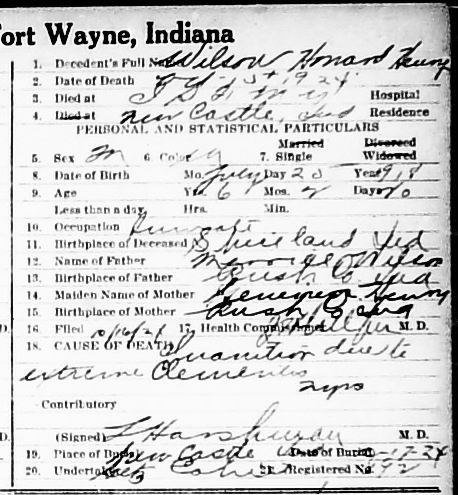 Fort Wayne, Indiana
1. Decedent's Full Name Wilson Howard Henry
2. Date of Death 1924
3. Died at Hospital
4. Died at New Castle, Ind Residence
PERSONAL AND STATISTICAL PARTICULARS
Married Divorced
5. Sex M 6 Color 7. Single Widowed
8. Date of Birth Mo. July Day 25 Year 1918
9. Age Yrs 6 Mos. 2 Days 20
Less than a day, Hrs. Min.
10. Occupation
11. Birthplace of Deceased Spiceland Ind
12. Name of Father Wilson
13. Birthplace of Father Rush Co Ind
14. Maiden Name of Mother Henry
15. Birthplace of Mother Rush Co Ind
D. 16 Filed 10/16/24 17. Health Commissioner M. D.
18. CAUSE OF DEATH Inanition due to
extreme
2 yrs
Contributory
D. (Signed) M. D.
19. Place of Burial New Castle Date of Burial 17-24
20. Undertaker 21. Registered No. 92